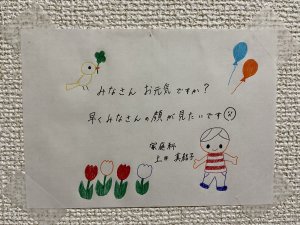 みなさん お元気ですか?
早くみなさんの顔が見たいです☹
家庭科